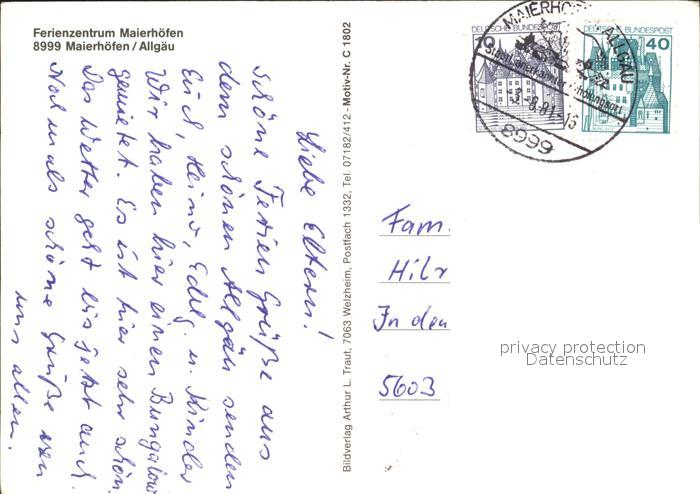 Ferienzentrum Maierhöfen
8999 Maierhöfen/Allgäu
Liebe Eltern!
Schöne Ferien Grüße aus
dem schönen Allgäu senden
Euch, Heinr, u. Kinder
Wir haben hier einen Bungalow
gemietet. Es ist hier sehr schön.
Das Wetter geht bis jetzt auch.
Nochmals schöne Grüße von
uns allen.
Bildverlag Arthur L. Traut, 7063 Welzheim, Postfach 1332, Tel. 07182/412 - Motiv-Nr. C 1802
DEUTSCHE BUNDESPOST
10
DEUTSCHE BUNDESPOST
40
MAIERHÖFEN ALLGÄU
8999
Fam.
Hilr
In den
5603
privacy protection
Datenschutz